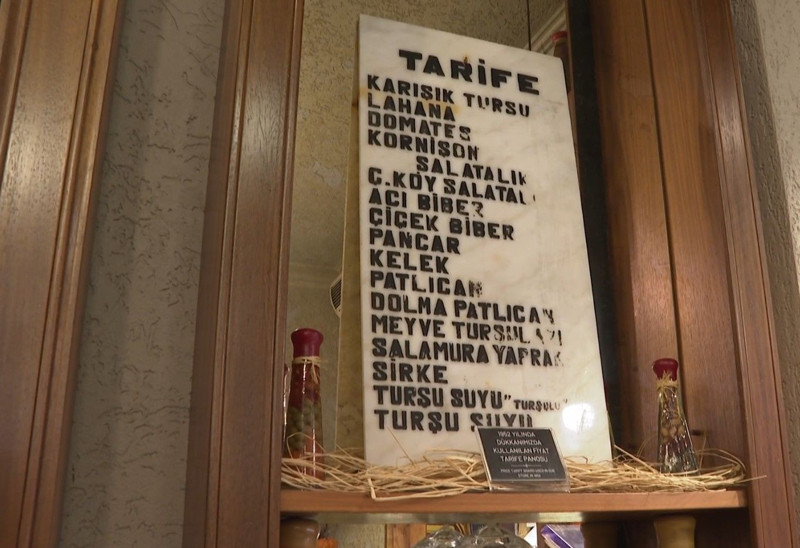 TARİFE
KARIŞIK TURŞU
LAHANA
DOMATES
KORNİŞON
SALATALIK
Ç.KÖY SALATAL
ACI BİBER
ÇİÇEK BİBER
PANCAR
KELEK
PATLICAN
DOLMA PATLICAN
MEYVE TURŞULARI
SALAMURA YAPRAK
SİRKE
TURŞU SUYU "TURŞULU"
TURŞU SUYU
1962 YILINDA
DÜKKANIMIZDA
KULLANILAN FİYAT
TARİFE PANOSU